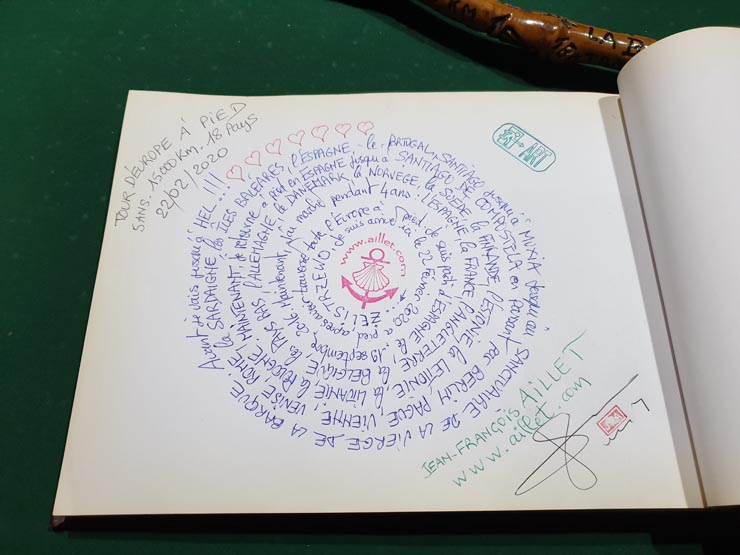 TOUR D'EUROPE À PIED
5ANS. 15000 Km. 18 Pays
22/02/2020
www.aillet.com
ZELISTRZEWO. Je suis arrivé ici le 22 février 2020 à pied, après avoir traversé toute l'Europe à pied. Je suis parti d'ESPAGNE le 19 septembre 2016. Maintenant, j'ai marché pendant 4 ans: l'ESPAGNE, la FRANCE, l'ANGLETERRE, la BELGIQUE, les PAYS BAS, l'ALLEMAGNE, le DANEMARK, la NORVEGE, la SUEDE, la FINLANDE, l'ESTONIE, la LETONIE, la LITUANIE, la POLOGNE. MAINTENANT, je retourne à pied en ESPAGNE jusqu'à SANTIAGO DE COMPOSTELA en passant par BERLIN, PAGUE, VIENNE, VENISE, ROME, la SARDAIGNE, les ILES BALEARES, l'ESPAGNE, le PORTUGAL, SANTIAGO jusqu'à MUXIA jusqu'au SANCTUAIRE DE LA VIERGE DE LA BARQUE. Avant je vais jusqu'à HEL...!!!
JEAN-FRANÇOIS AILLET
www.aillet.com
LA B
KM
18